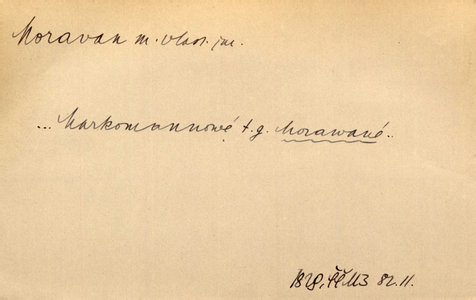 Moravan m. vlast. jm.
... Markomannowé t. g. Morawané..
1828, ČČM3 82.11.